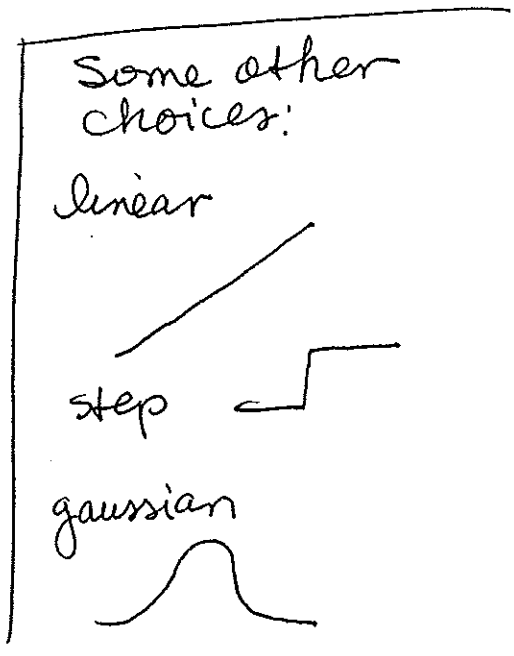 Some other
choices:
linear
step
gaussian